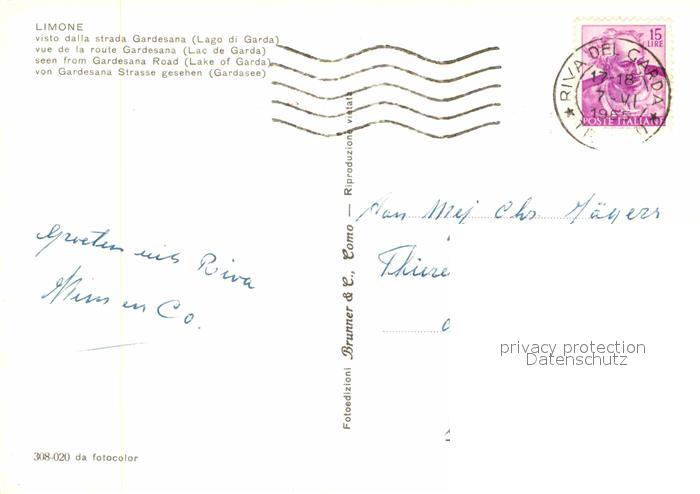 LIMONE
visto dalla strada Gardesana (Lago di Garda)
vue de la route Gardesana (Lac de Garda)
seen from Gardesana Road (Lake of Garda)
von Gardesana Strasse gesehen (Gardasee)
15
LIRE
RIVA DEL GARDA
17-18
7-VI
POSTE ITALIANE
Groeten uit Riva
Wim en Co.
Aan Mej Chs Jägers
privacy protection
Datenschutz
Fotoedizioni Brunner & C., Como — Riproduzione vietata
308-020 da fotocolor